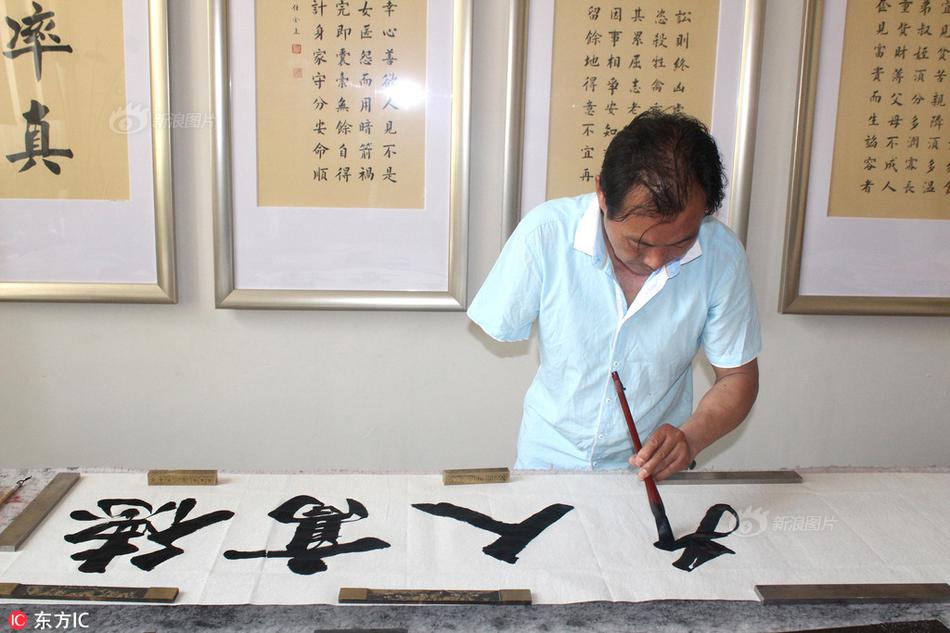 率真
幸心善欲人見不是
女匿怨而用暗箭禍
完即囊橐無餘自得
計身家守分安命順
訟則終凶處
恣殺牲禽
其累屈志老
因事相爭安知
留餘地得意不宜再
見貧苦親鄰須多溫
弟叔姪須分多潤寡長
重貲財薄父母不成人
奩見富貴而生諂容者
人高德
新浪图片
新浪图片
IC 东方IC